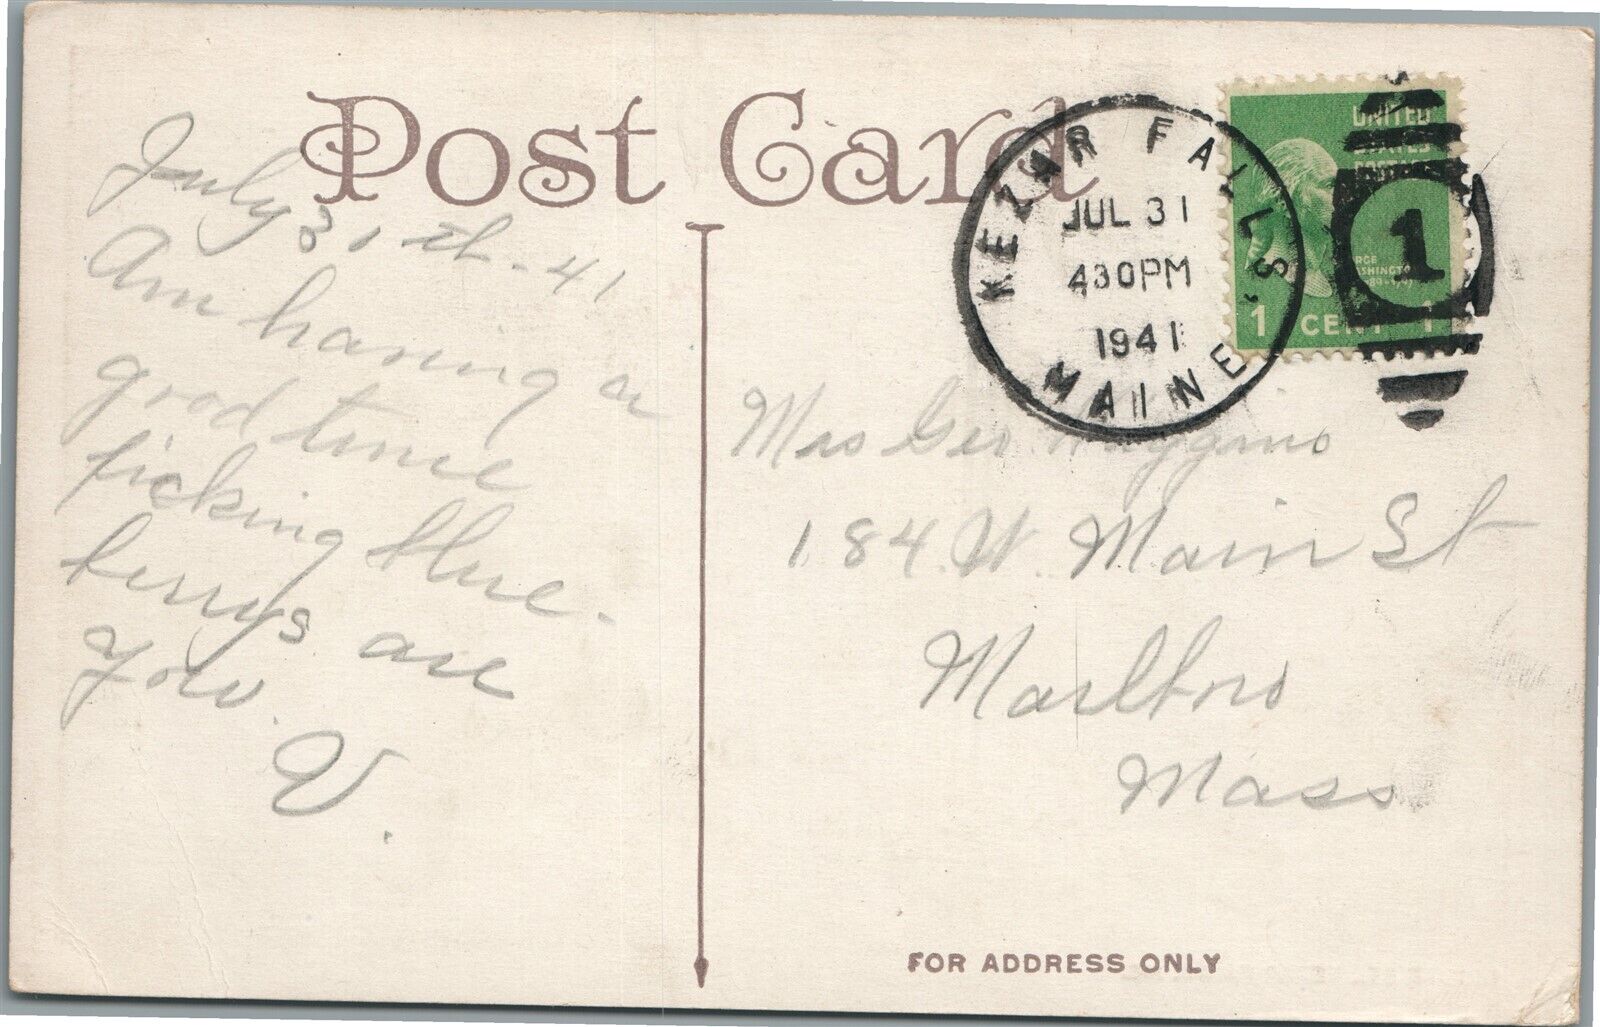 Post Card
July 31 th - 41
Am having a
good time
picking blue-
berrys are
you.
V.
KEZAR FALLS,
JUL 31
430PM
1941
MAINE
UNITED
STATES
POSTAGE
1 CENT 1
1
Mrs Geo Huggins
184 W. Main St
Marlboro
Mass
FOR ADDRESS ONLY